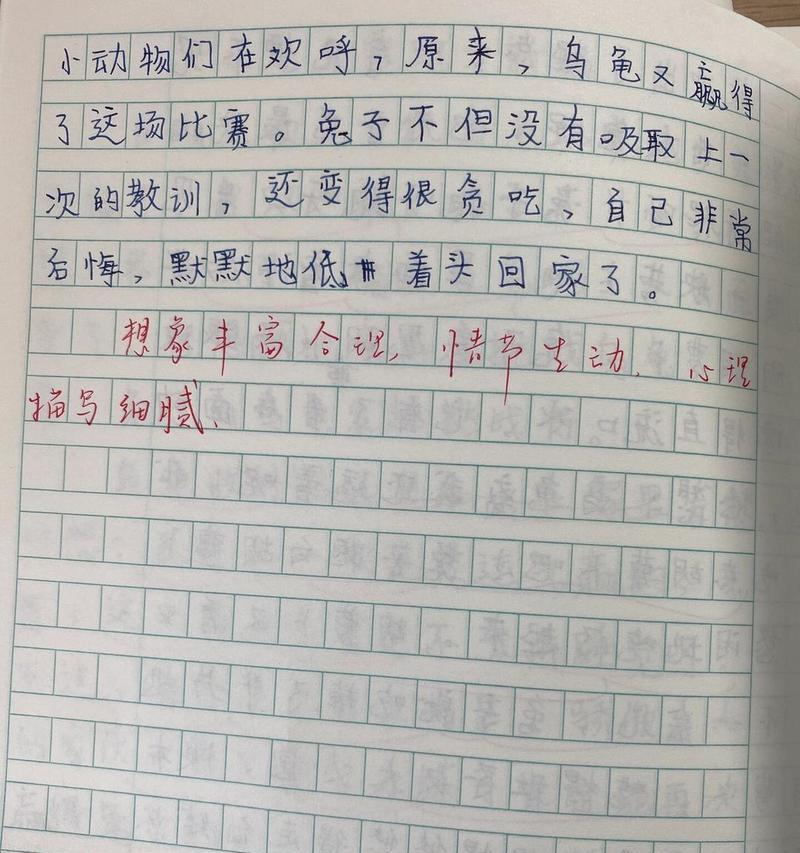 小动物们在欢呼，原来，乌龟又赢得
了这场比赛。兔子不但没有吸取上一
次的教训，还变得很贪吃，自己非常
后悔，默默地低着头回家了。
想象丰富合理，情节生动、心理
描写细腻、